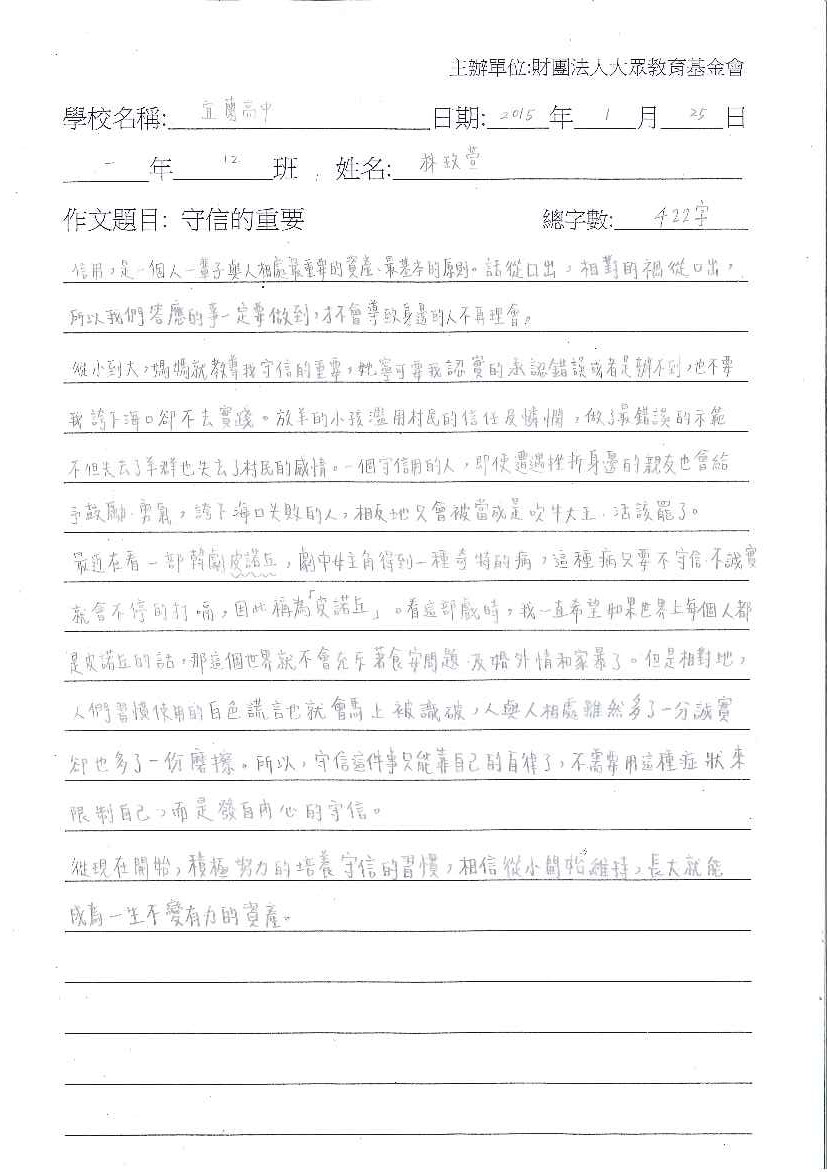 主辦單位:財團法人大眾教育基金會
學校名稱: 宜蘭高中 日期: 2015 年 1 月 25 日
一 年 12 班 姓名: 林玟萱
作文題目: 守信的重要 總字數: 422字
信用,是一個人一輩子與人相處最重要的資產、最基本的原則。話從口出,相對的禍從口出,
所以我們答應的事一定要做到,才不會導致身邊的人不再理會。
從小到大,媽媽就教導我守信的重要,她寧可要我認實的承認錯誤或者是辦不到,也不要
我誇下海口卻不去實踐。放羊的小孩濫用村民的信任及憐憫,做了最錯誤的示範
不但失去了羊群也失去了村民的感情。一個守信用的人,即使遭遇挫折身邊的親友也會給
予鼓勵、勇氣,誇下海口失敗的人,相反地只會被當成是吹牛大王、活該罷了。
最近在看一部韓劇皮諾丘,劇中女主角得到一種奇特的病,這種病只要不守信、不誠實
就會不停的打嗝,因此稱為「皮諾丘」。看這部戲時,我一直希望如果世界上每個人都
是皮諾丘的話,那這個世界就不會充斥著食安問題、及婚外情和家暴了。但是相對地,
人們習慣使用的白色謊言也就會馬上被識破,人與人相處雖然多了一分誠實
卻也多了一份磨擦。所以,守信這件事只能靠自己的自律了,不需要用這種症狀來
限制自己,而是發自內心的守信。
從現在開始,積極努力的培養守信的習慣,相信從小開始維持,長大就能
成為一生不變有力的資產。